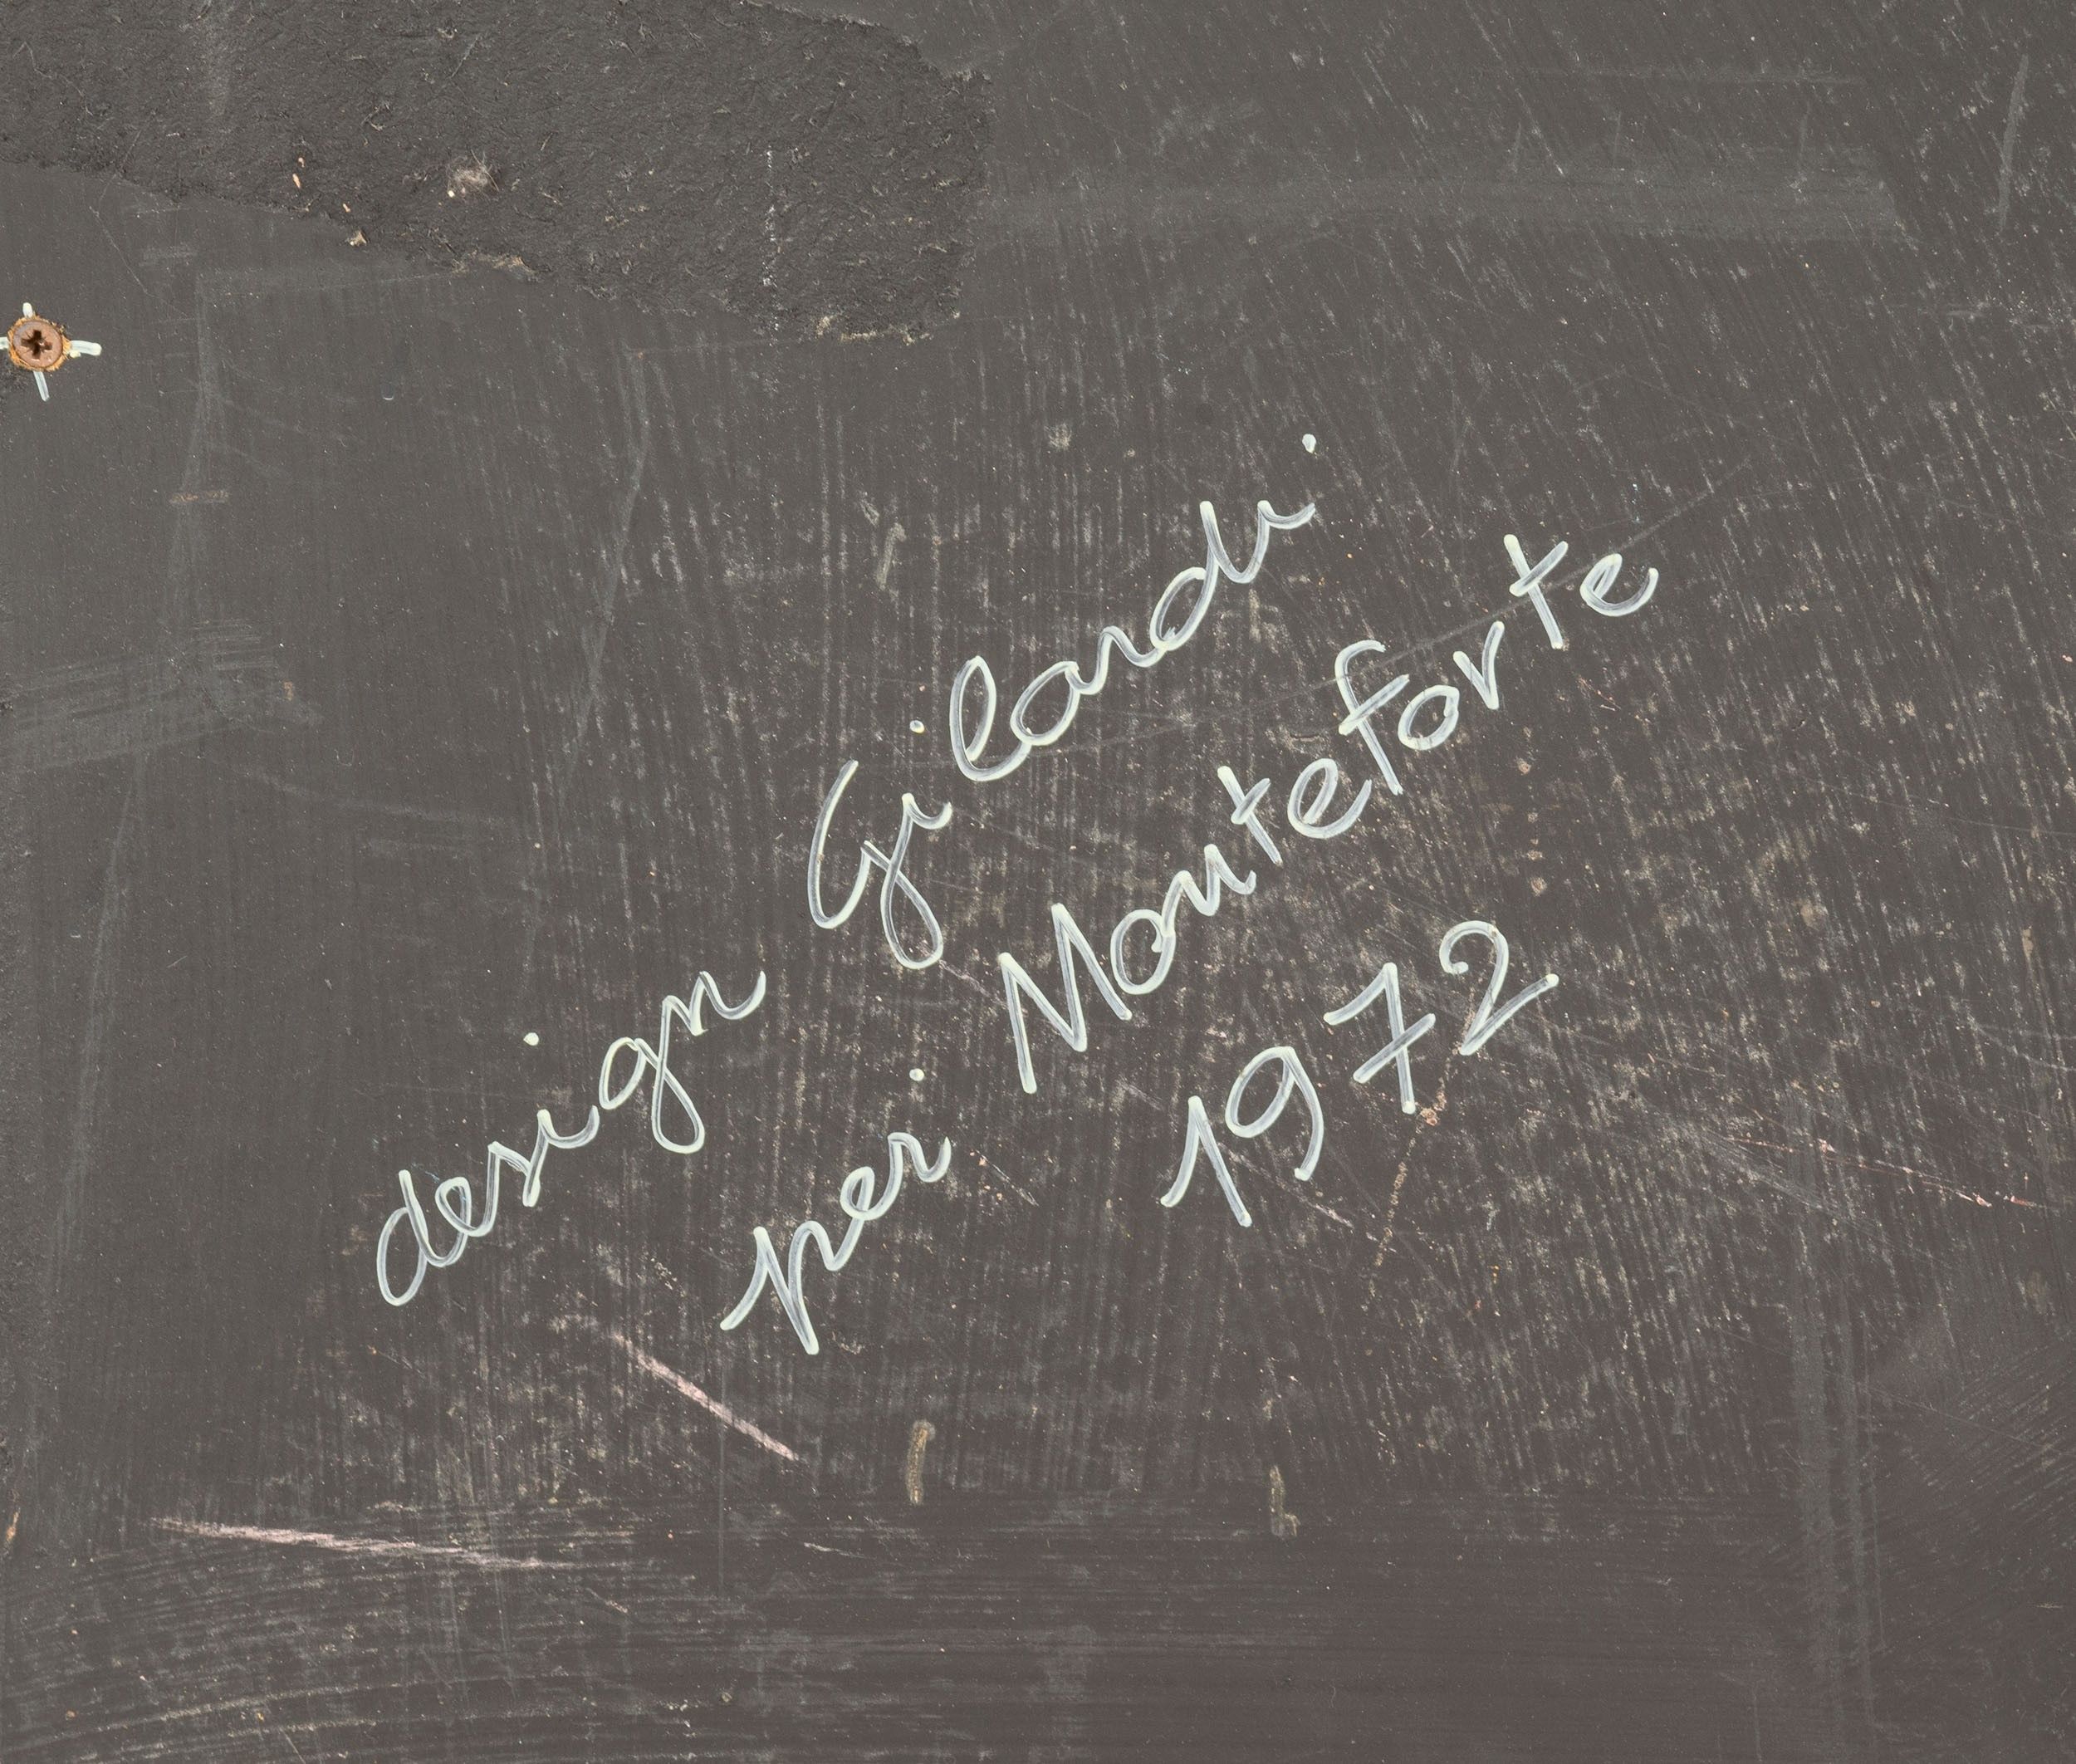 design Gilardi
per Monteforte
1972